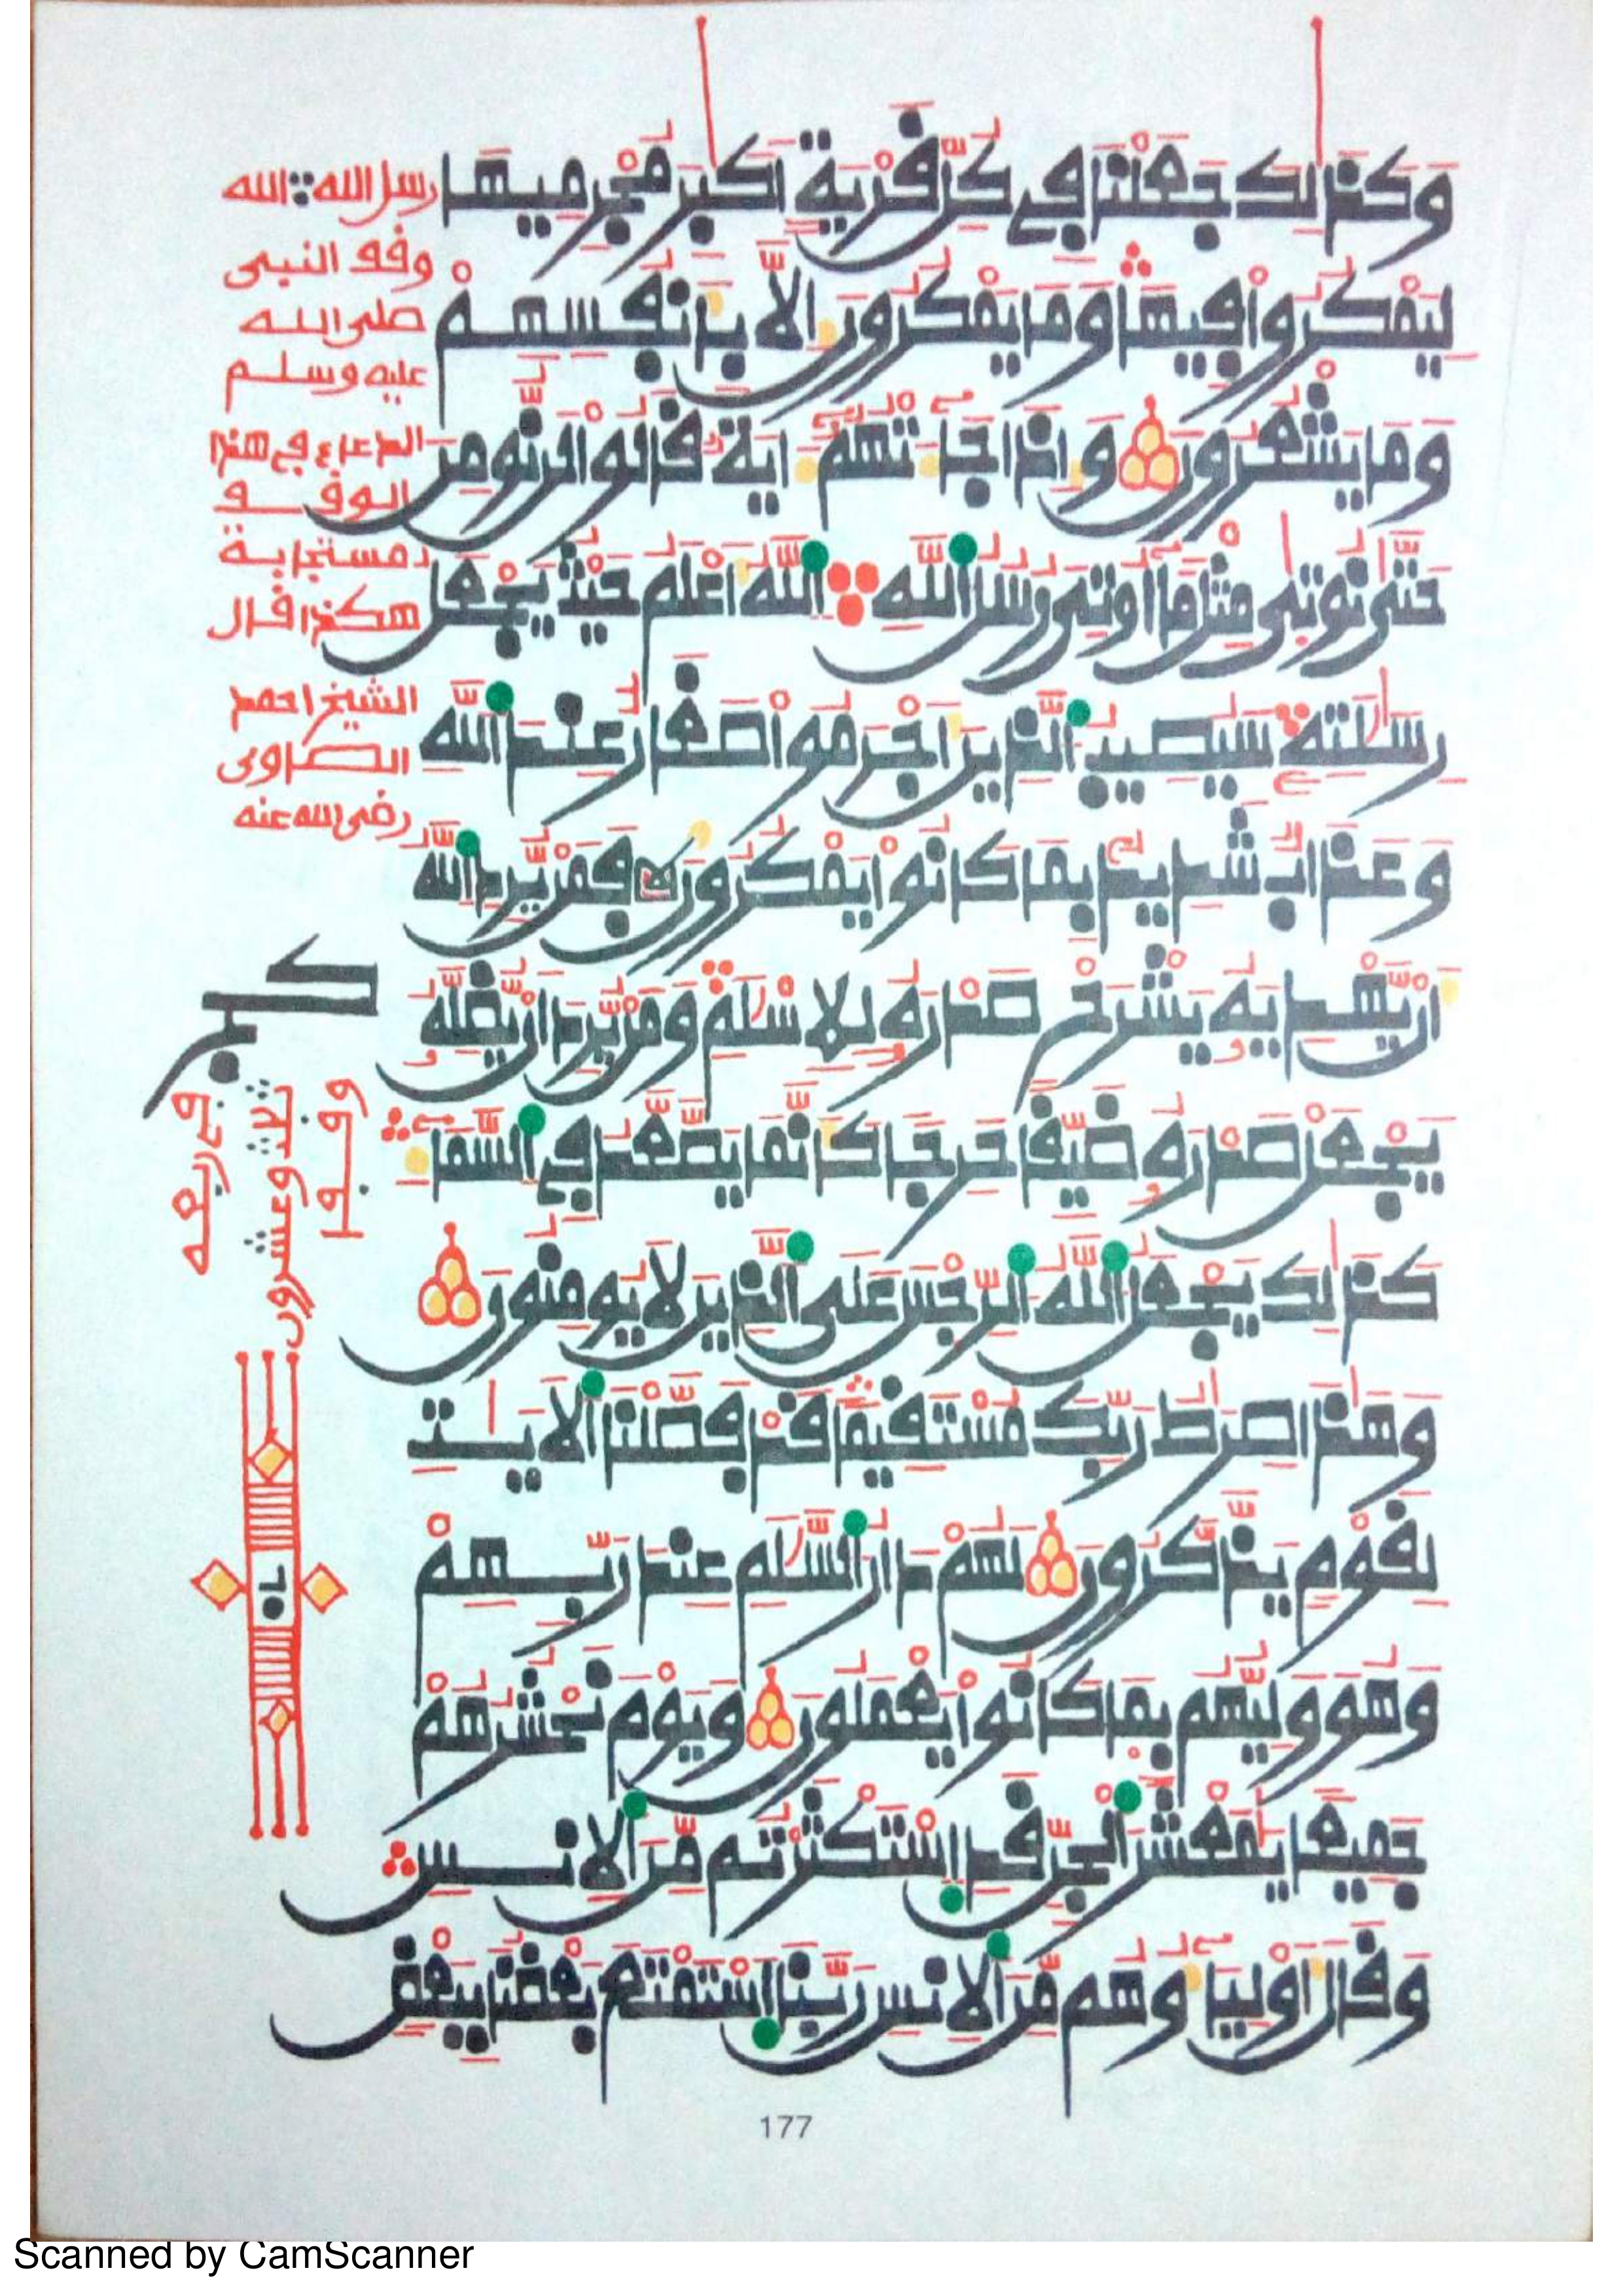 وكذلك جعلنا في كل قرية اكبر مجرميها
ليمكروا فيها وما يمكرون الا بانفسهم
وما يشعرون واذا جاءتهم اية قالوا لن نومن
حتى نوتى مثل ما اوتي رسل الله الله اعلم حيث يجعل
رسلته سيصيب الذين اجرموا صغار عند الله
وعذاب شديد بما كانوا يمكرون فمن يرد الله
ان يهديه يشرح صدره للاسلم ومن يرد ان يضله
يجعل صدره ضيقا حرجا كانما يصعد في السماء
كذلك يجعل الله الرجس على الذين لا يومنون
وهذا صرط ربك مستقيما قد فصلنا الايت
لقوم يذكرون لهم دار السلم عند ربهم
وهو وليهم بما كانوا يعملون ويوم نحشرهم
جميعا يمعشر الجن قد استكثرتم من الانس
وقال اولياوهم من الانس ربنا استمتع بعضنا ببعض
رسل الله الله
وقف النبي
صلى الله
عليه وسلم
الدعاء في هذا
الوقف
مستجابة
هكذا قال
الشيخ احمد
الصاوى
رضى الله عنه
وقفا
ثلاث وعشرون
في ربعه
177
Scanned by CamScanner